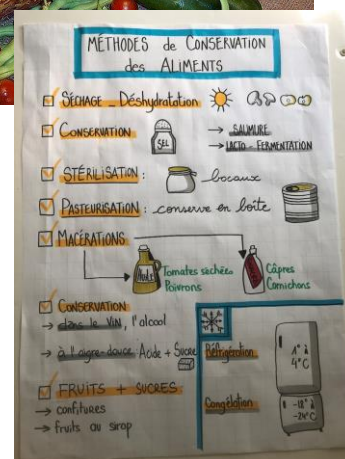 MÉTHODES de CONSERVATION
des ALIMENTS
SÉCHAGE _ Déshydratation
CONSERVATION
SEL
→ SAUMURE
→ LACTO - FERMENTATION
STÉRILISATION : bocaux
PASTEURISATION : conserve en boîte
MACÉRATIONS
Huile
Tomates séchées
Poivrons
Câpres
Cornichons
CONSERVATION
→ dans le VIN, l'alcool
→ à l'aigre-douce Acide + Sucre
FRUITS + SUCRES
→ confitures
→ fruits au sirop
Réfrigération
1° à
4°C
Congélation
-18° à
-24°C